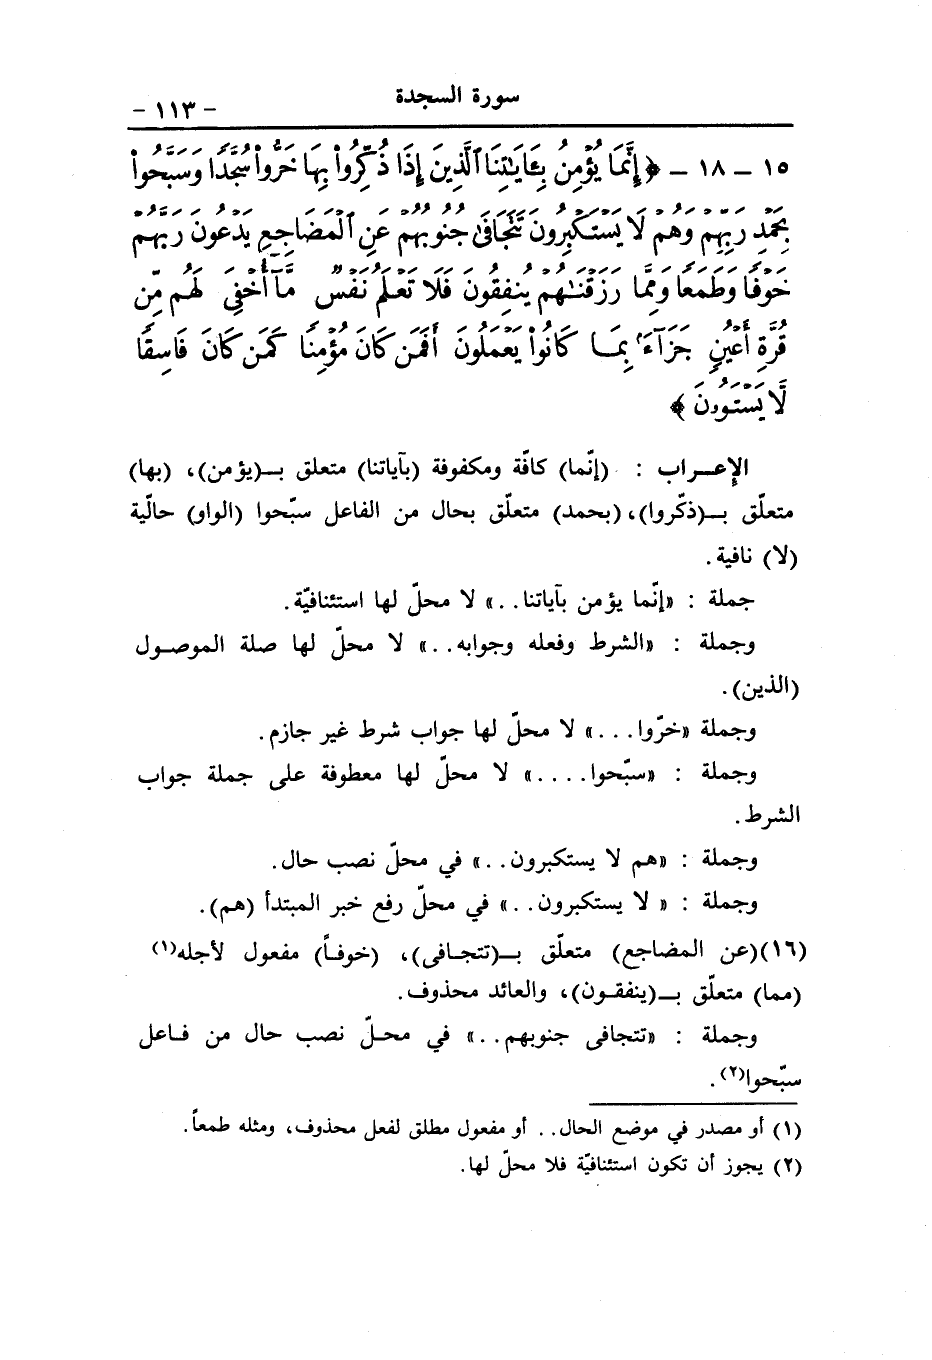 سورة السجدة
- ١١٣ -
١٥ - ١٨ - ﴿إِنَّمَا يُؤْمِنُ بِـَٔايَـٰتِنَا ٱلَّذِينَ إِذَا ذُكِّرُوا۟ بِهَا خَرُّوا۟ سُجَّدًا وَسَبَّحُوا۟
بِحَمْدِ رَبِّهِمْ وَهُمْ لَا يَسْتَكْبِرُونَ تَتَجَافَىٰ جُنُوبُهُمْ عَنِ ٱلْمَضَاجِعِ يَدْعُونَ رَبَّهُمْ
خَوْفًا وَطَمَعًا وَمِمَّا رَزَقْنَـٰهُمْ يُنفِقُونَ فَلَا تَعْلَمُ نَفْسٌ مَّآ أُخْفِىَ لَهُم مِّن
قُرَّةِ أَعْيُنٍ جَزَآءًۢ بِمَا كَانُوا۟ يَعْمَلُونَ أَفَمَن كَانَ مُؤْمِنًا كَمَن كَانَ فَاسِقًا
لَّا يَسْتَوُۥنَ﴾
الإعـــراب : (إنّما) كافّة ومكفوفة (بآياتنا) متعلق بــ(يؤمن)، (بها)
متعلّق بــ(ذكّروا)، (بحمد) متعلّق بحال من الفاعل سبّحوا (الواو) حالّية
(لا) نافية.
جملة : «إنّما يؤمن بآياتنا..» لا محلّ لها استئنافيّة.
وجملة : «الشرط وفعله وجوابه..» لا محلّ لها صلة الموصـول
(الذين).
وجملة «خرّوا...» لا محلّ لها جواب شرط غير جازم.
وجملة : «سبّحوا....» لا محلّ لها معطوفة على جملة جواب
الشرط.
وجملة : «هم لا يستكبرون..» في محلّ نصب حال.
وجملة : « لا يستكبرون..» في محلّ رفع خبر المبتدأ (هم).
(١٦)(عن المضاجع) متعلّق بــ(تتجـافى)، (خوفـاً) مفعول لأجله(١)
(مما) متعلّق بــ(ينفقـون)، والعائد محذوف.
وجملة : «تتجافى جنوبهم..» في محـلّ نصب حال من فـاعل
سبّحوا(٢).
(١) أو مصدر في موضع الحال.. أو مفعول مطلق لفعل محذوف، ومثله طمعاً.
(٢) يجوز أن تكون استئنافيّة فلا محلّ لها.